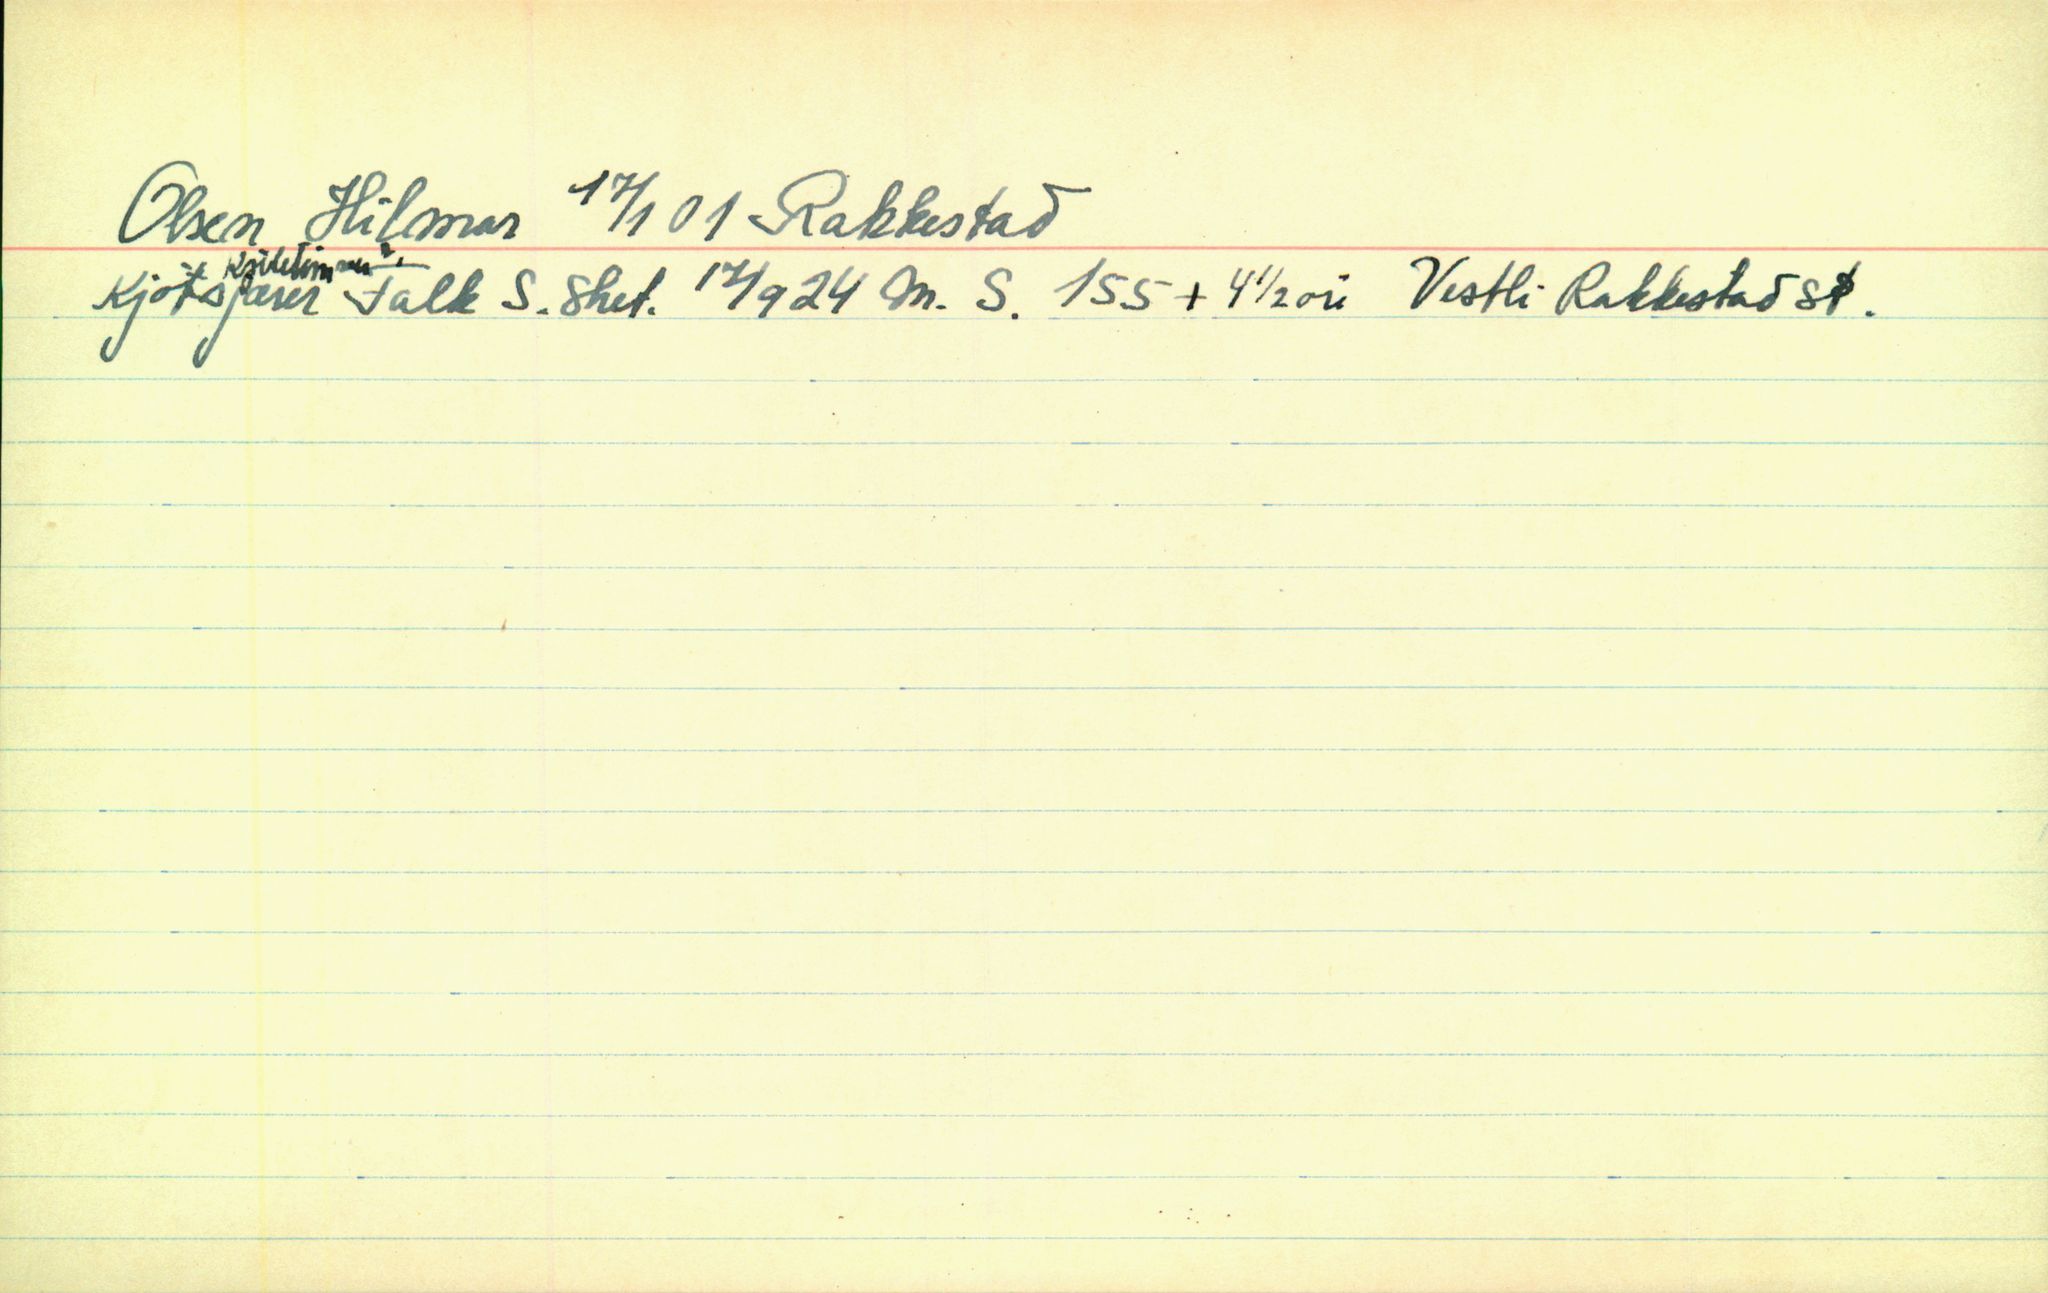 Olsen Hilmar 17/1 01 Rakkestad
Kjøtskjærer Falk S. Shet. 17/9 24 M. S. 155 + 4 1/2 öre Vestli Rakkestad St.